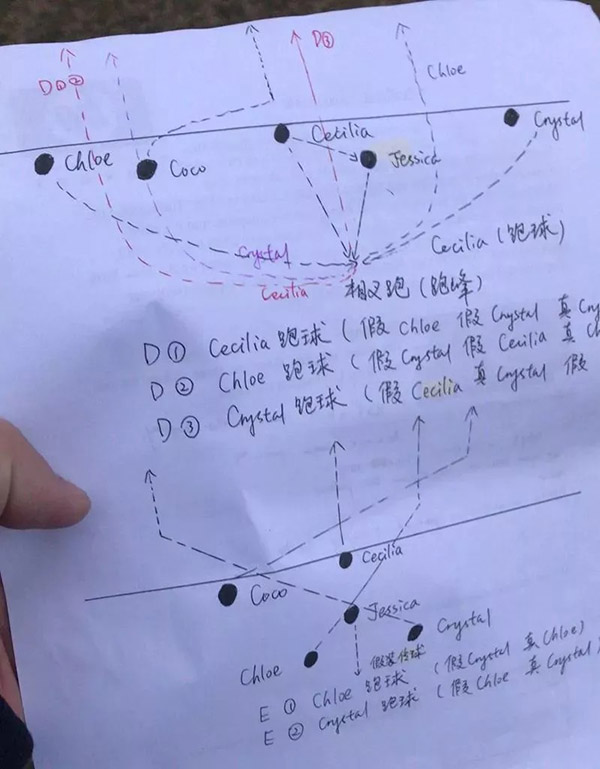 D③
D①②
Chloe
Crystal
Cecilia
Jessica
Chloe
Coco
Crystal
Cecilia (跑球)
Cecilia
相叉跑 (跑峰)
D ① Cecilia 跑球 (假 Chloe 假 Crystal 真
D ② Chloe 跑球 (假 Crystal 假 Cecilia 真
D ③ Crystal 跑球 (假 Cecilia 真 Crystal 假
Cecilia
Coco
Jessica
Crystal
Chloe
假装传球
E ① Chloe 跑球 (假 Crystal 真 Chloe)
E ② Crystal 跑球 (假 Chloe 真 Crystal)